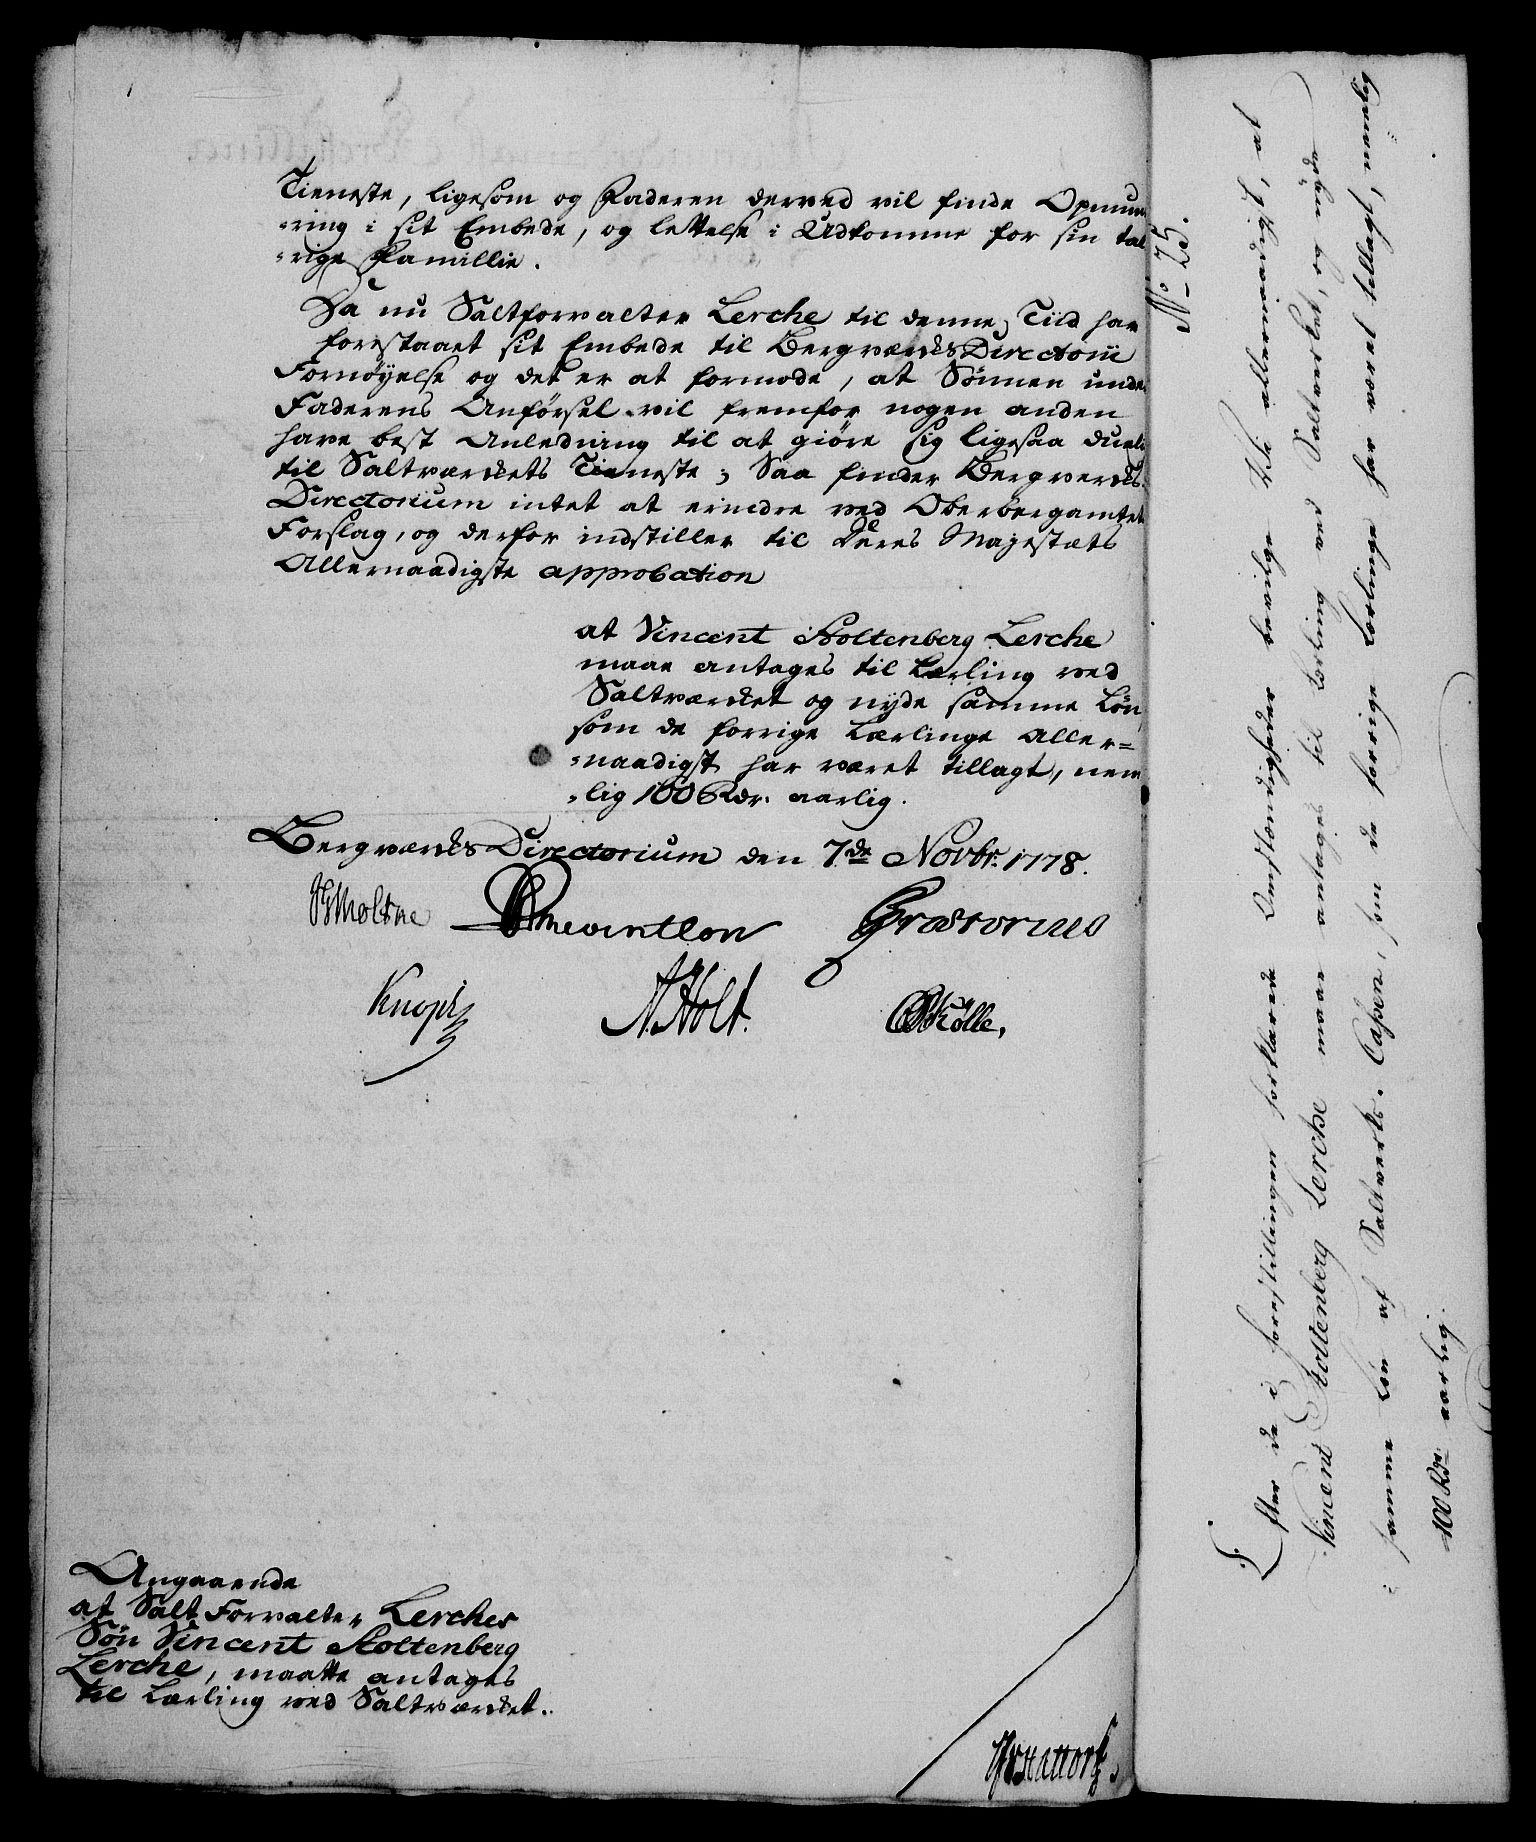 Tieneste, ligesom og Faderen derved vil finde Opmun
-ring i sit Embede, og lettelse i Udkomme for sin tal
-rige Famillie.
Da nu Saltforvalter Lerche til denne Tiid har
forestaaet sit Embede til BergværksDirectorii
Fornøyelse og det er at formode, at Sønnen unde
Faderens Anførsel vil fremfor nogen anden
have best Anledning til at giøre sig ligesaa dueli
til Saltværkets Tieneste; Saa finder Bergværks-
Directorium intet at erindre ved Oberbergamtet
Forslag, og derfor indstiller til Deres Majestæts
Allernaadigste approbation
at Vincent Stoltenberg Lerche
maae antages til Lærling ved
Saltværket og nyde samme Løn,
som de forrige Lærlinge Aller=
-naadigst har været tillagt, nem
-lig 100 Rdr. aarlig.
BergværksDirectorium den 7de Novbr. 1778.
Moltke Reventlou Prætorius
Knoph N. Holt. Kölle,
Angaaende
at Salt Forvalter Lerches
Søn Vincent Stoltenberg
Lerche, maatte antages
til Lærling ved Saltværket.
No 25.
Efter de i Forestillingen forklarede Omstændigheder bevilge Vi allernaadigst, at
Vincent Stoltenberg Lerche maae antages til Lærling ved Saltverket, og nyde
samme Løn af Saltverks-Cassen, som de forrige Lærlinge har været tillagt, nemlig
100 Rdr aarlig.